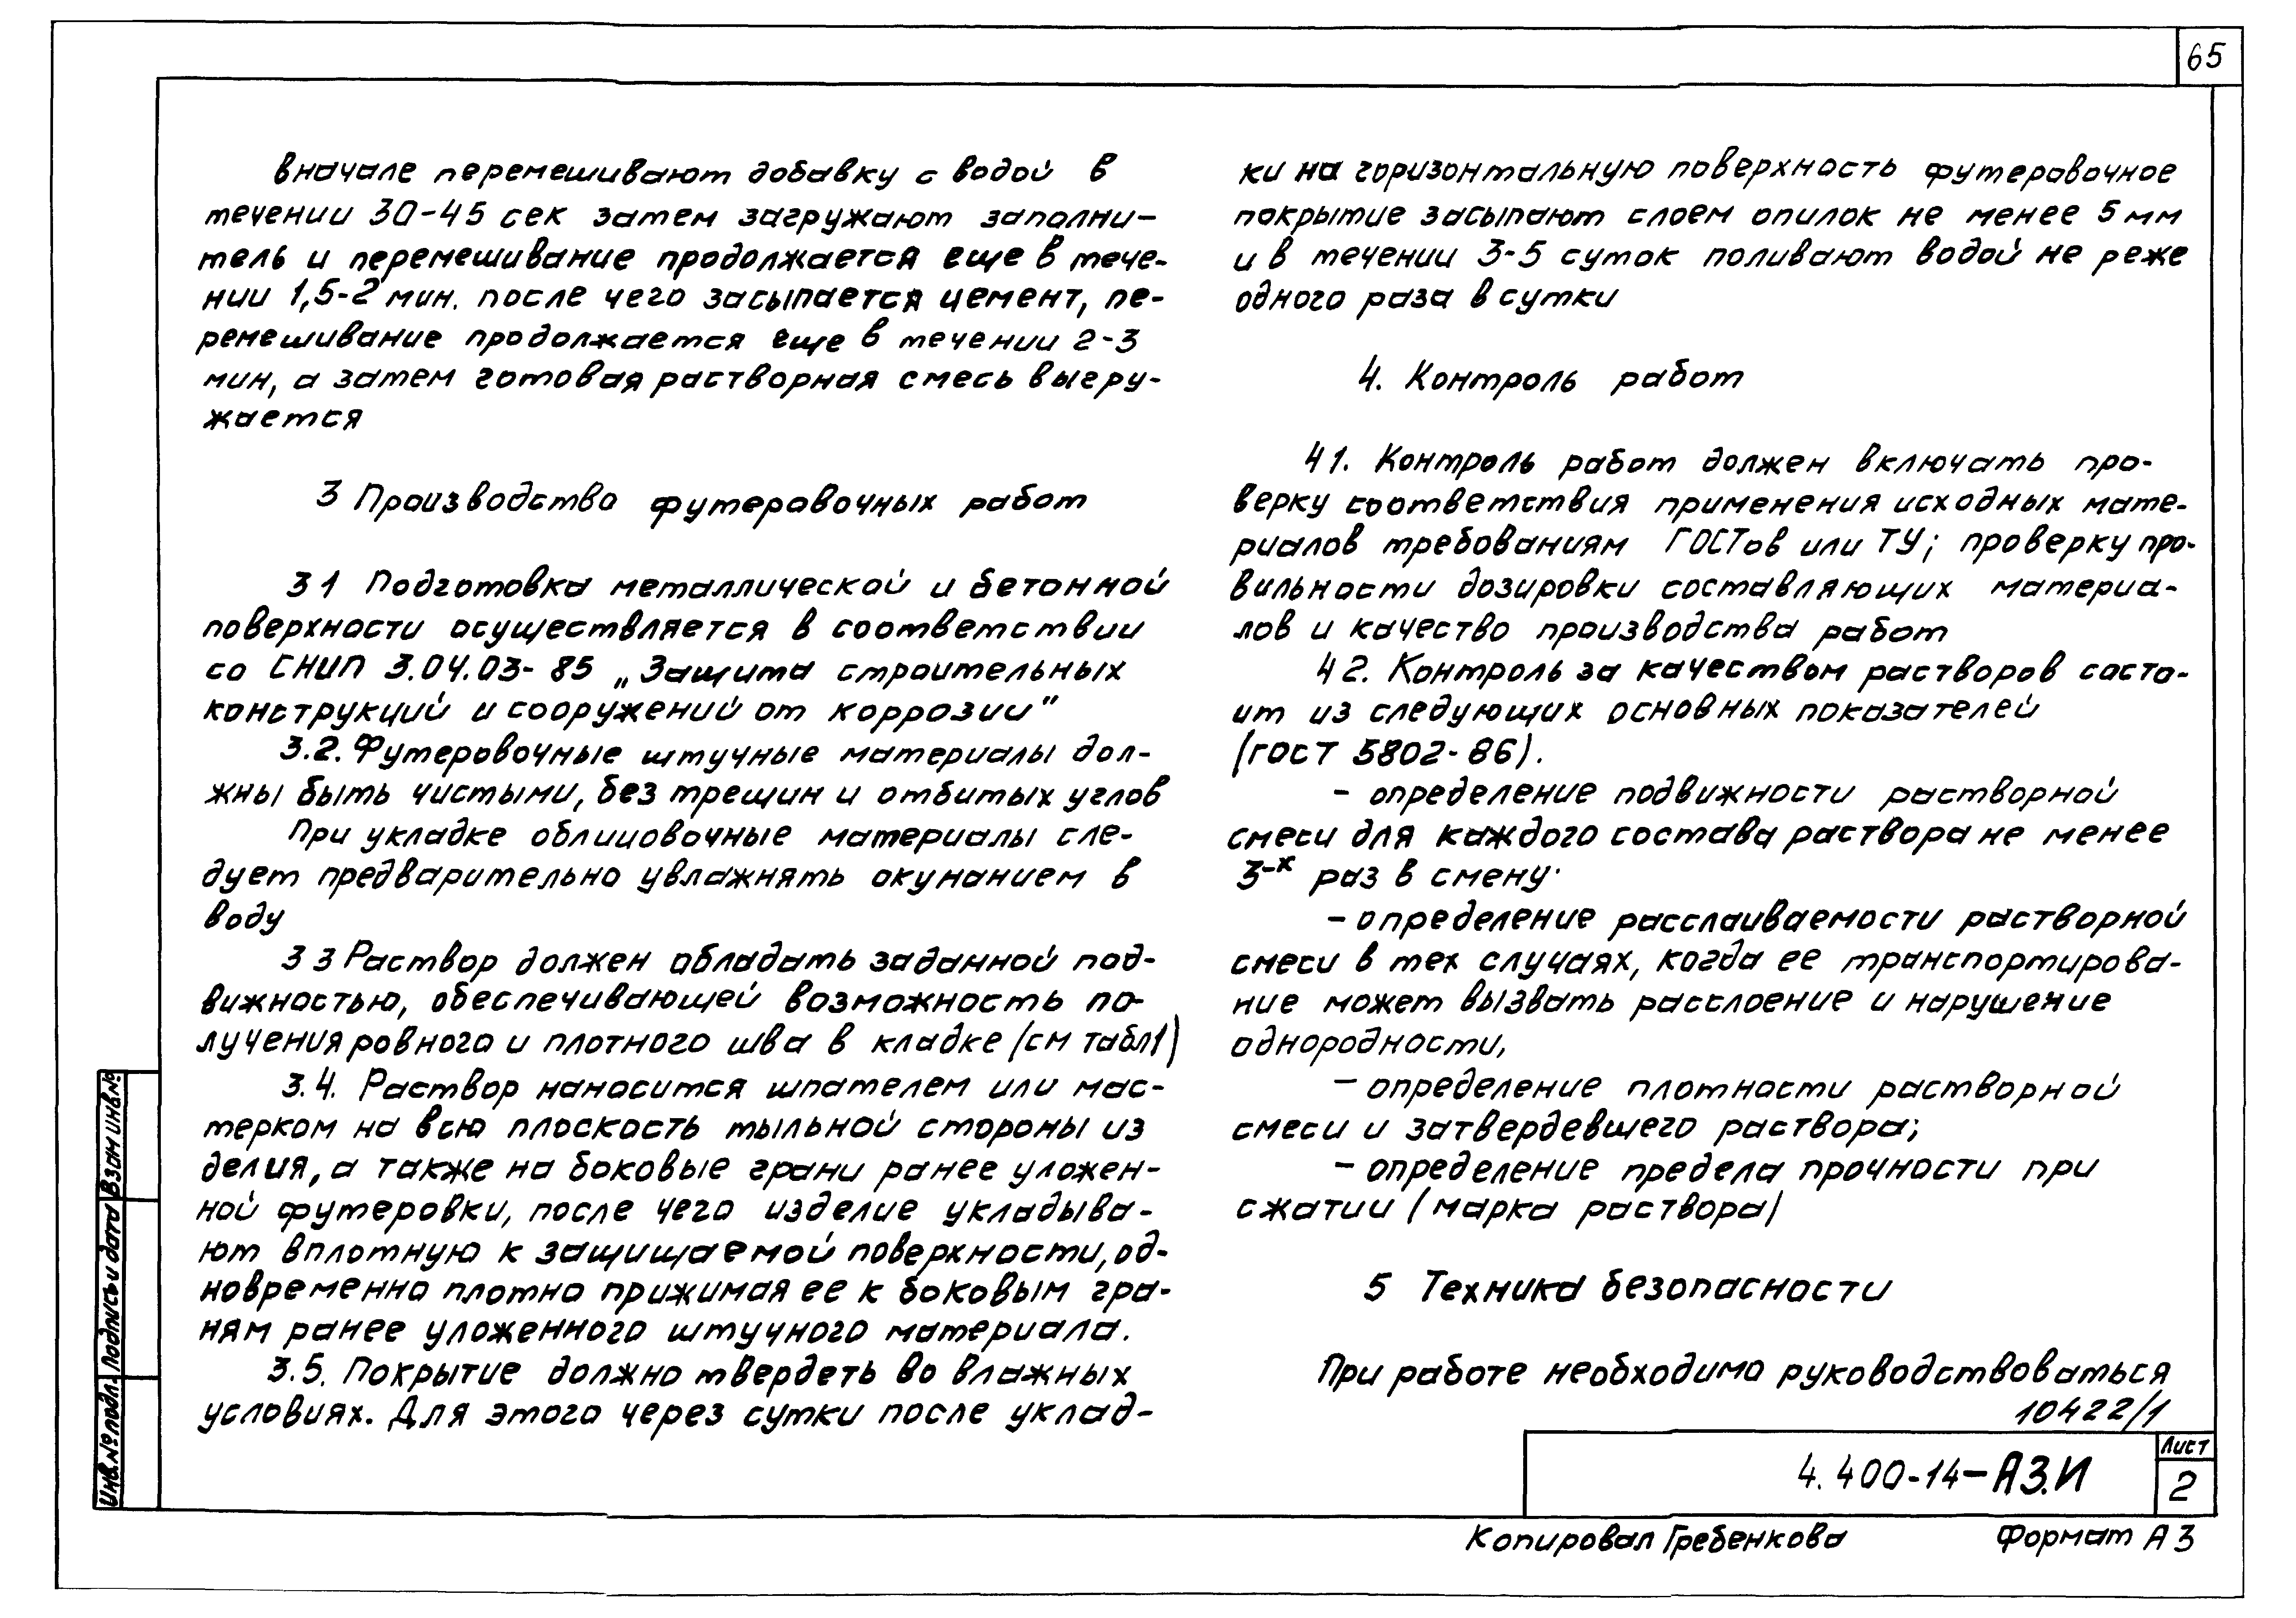 65
вначале перемешивают добавку с водой в
течении 30-45 сек затем загружают заполни-
тель и перемешивание продолжается еще в тече-
нии 1,5-2 мин. после чего засыпается цемент, пе-
ремешивание продолжается еще в течении 2-3
мин, а затем готовая растворная смесь выгру-
жается
3 Производство футеровочных работ
3 1 Подготовка металлической и бетонной
поверхности осуществляется в соответствии
со СНИП 3.04.03-85 „Защита строительных
конструкций и сооружений от коррозии"
3.2. Футеровочные штучные материалы дол-
жны быть чистыми, без трещин и отбитых углов
При укладке облицовочные материалы сле-
дует предварительно увлажнять окунанием в
воду
3 3 Раствор должен обладать заданной под-
вижностью, обеспечивающей возможность по-
лучения ровного и плотного шва в кладке (см табл1)
3.4. Раствор наносится шпателем или мас-
терком на всю плоскость тыльной стороны из
делия, а также на боковые грани ранее уложен-
ной футеровки, после чего изделие укладыва-
ют вплотную к защищаемой поверхности, од-
новременно плотно прижимая ее к боковым гра-
ням ранее уложенного штучного материала.
3.5. Покрытие должно твердеть во влажных
условиях. Для этого через сутки после уклад-
ки на горизонтальную поверхность футеровочное
покрытие засыпают слоем опилок не менее 5 мм
и в течении 3-5 суток поливают водой не реже
одного раза в сутки
4. Контроль работ
4 1. Контроль работ должен включать про-
верку соответствия применения исходных мате-
риалов требованиям ГОСТов или ТУ; проверку пра-
вильности дозировки составляющих материа-
лов и качество производства работ
4 2. Контроль за качеством растворов состо-
ит из следующих основных показателей
(ГОСТ 5802-86).
- определение подвижности растворной
смеси для каждого состава раствора не менее
3-х раз в смену.
- определение расслаиваемости растворной
смеси в тех случаях, когда ее транспортирова-
ние может вызвать расслоение и нарушение
однородности,
- определение плотности растворной
смеси и затвердевшего раствора;
- определение предела прочности при
сжатии (марка раствора)
5 Техника безопасности
При работе необходимо руководствоваться
10422/1
4.400-14-АЗ.И
Лист
2
Копировал Гребенкова Формат А3
Инв.№ подл. Подпись и дата Взам инв.№